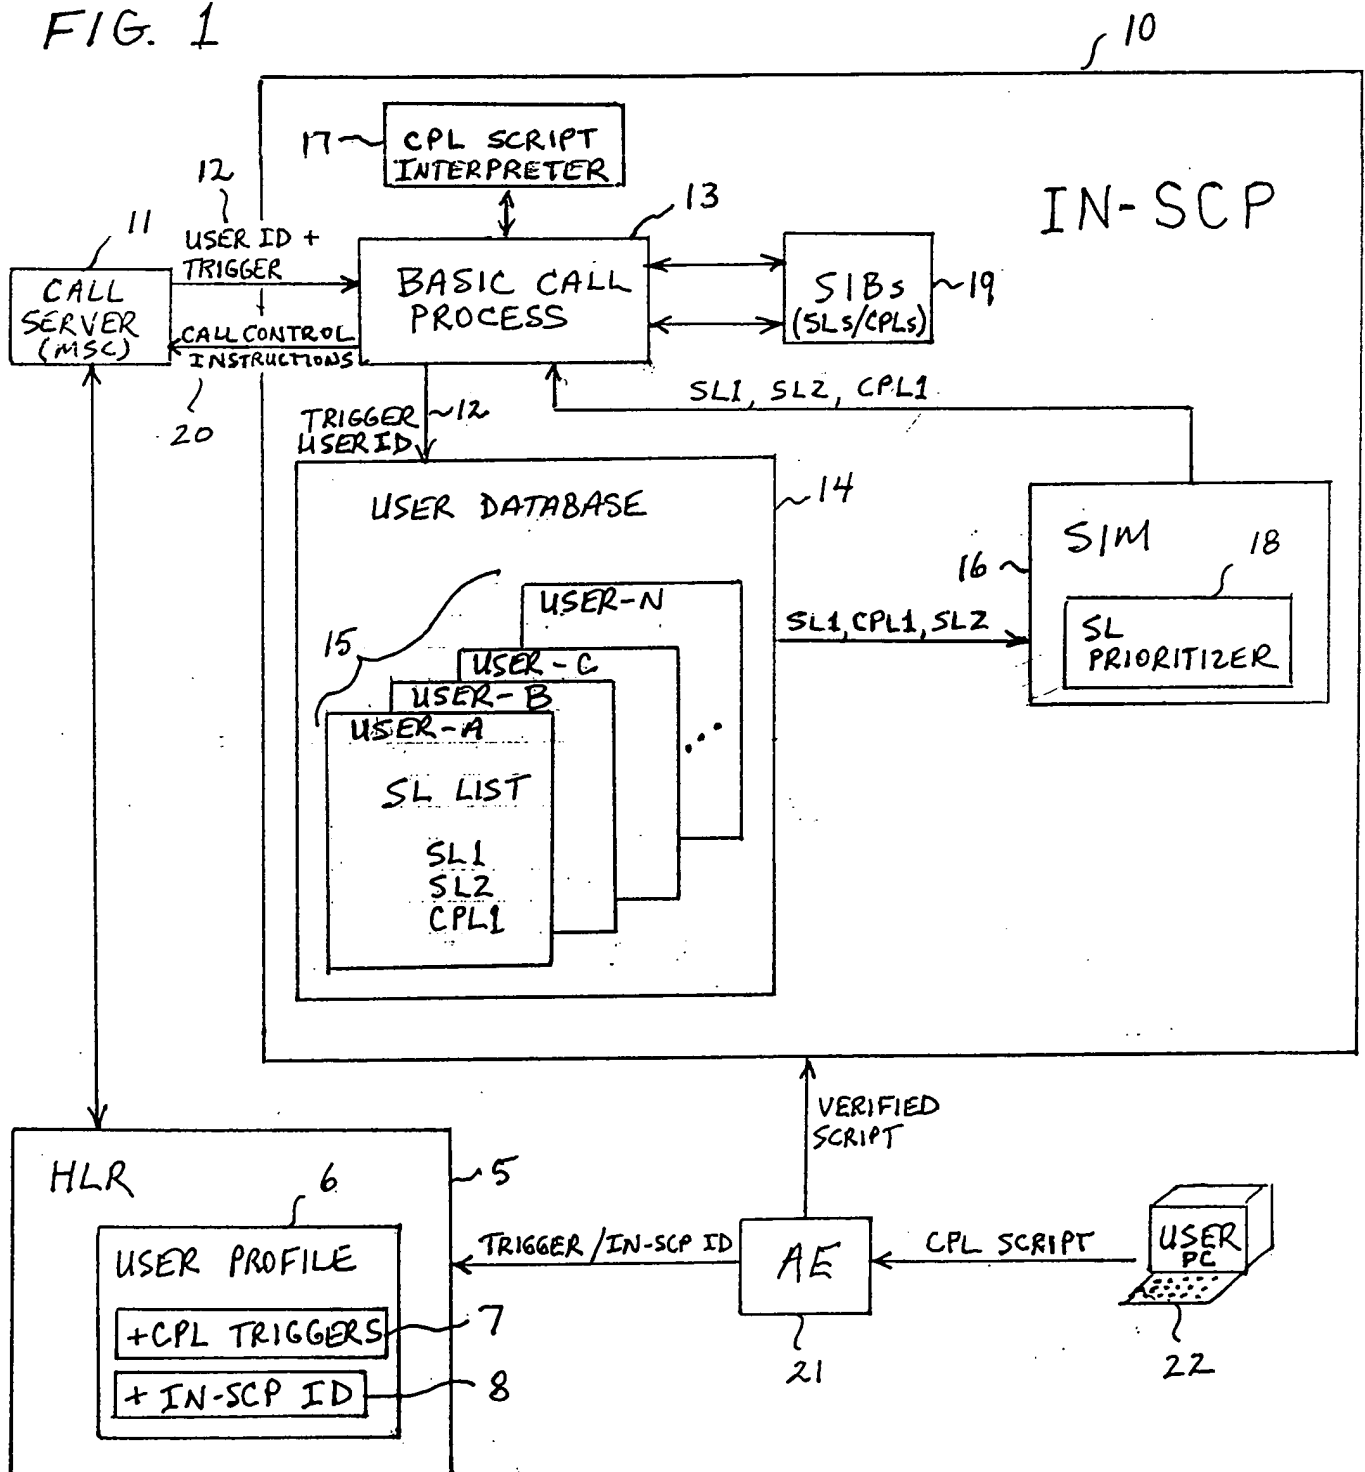 FIG. 1
10
17
CPL SCRIPT
INTERPRETER
IN-SCP
12
13
11
USER ID +
TRIGGER
CALL
SERVER
(MSC)
BASIC CALL
PROCESS
SIBs
(SLs/CPLs)
19
CALL CONTROL
INSTRUCTIONS
20
SL1, SL2, CPL1
TRIGGER
USER ID
12
USER DATABASE
14
SIM
16
18
SL
PRIORITIZER
SL1, CPL1, SL2
15
USER-N
USER-C
USER-B
USER-A
SL LIST
SL1
SL2
CPL1
VERIFIED
SCRIPT
HLR
5
6
USER PROFILE
+CPL TRIGGERS
7
+ IN-SCP ID
8
TRIGGER/IN-SCP ID
AE
21
CPL SCRIPT
USER
PC
22